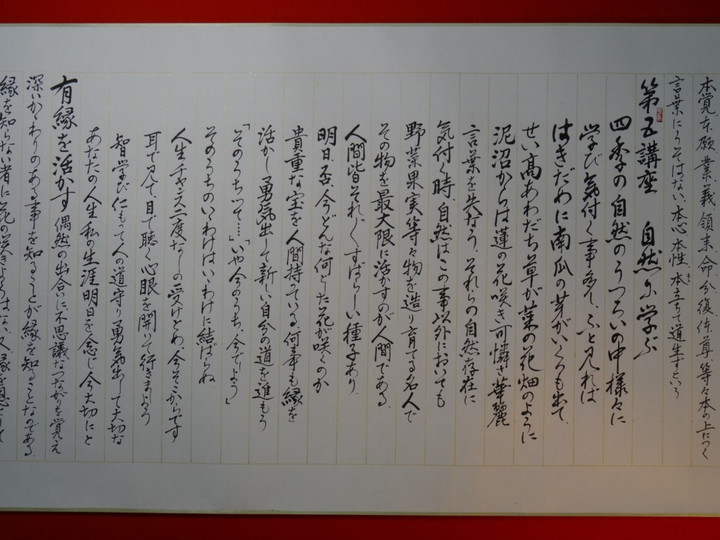 本覚本願業義領来命分後体尊等々本の上につく
言葉にうそはない本心本性本立ちて道生ずという
第五講座 自然に学ぶ
四季の自然のうつろいの中様々に
学び気付く事多く、ふと見れば
はきだめに南瓜の芽がいくつも出て
せい高あわだち草が菜の花畑のように
泥沼からは蓮の花咲き可憐さ華麗
言葉を失なう それらの自然存在に
気付く時、自然はこの事以外においても
野菜果実等々物を造り育てる名人で
その物を最大限に活かすのが人間である
人間皆それぞれすばらしい種子あり
明日否、今どんな何とた花が咲くのか
貴重な宝を人間持っている何事も縁を
活かし勇気出して新しい自分の道を進もう
「そのうちって…いいや今のうち、今でしょう」
そのうちのいいわけはいいわけに結ばらね
人生チャンス二度なしの受けとめ、今そこからです
耳で見て目で聴く心眼を開いて行きましょう
智学び仁もって人の道守り勇気出して大切な
あなたの人生私の生涯明日を念じ今大切にと
有縁を活かす 偶然の出合いに不思議なつながりを覚え
深いかかわりのある事を知ることが縁を知ることなのである
縁を知らない者に花の咲きようはない、又縁を